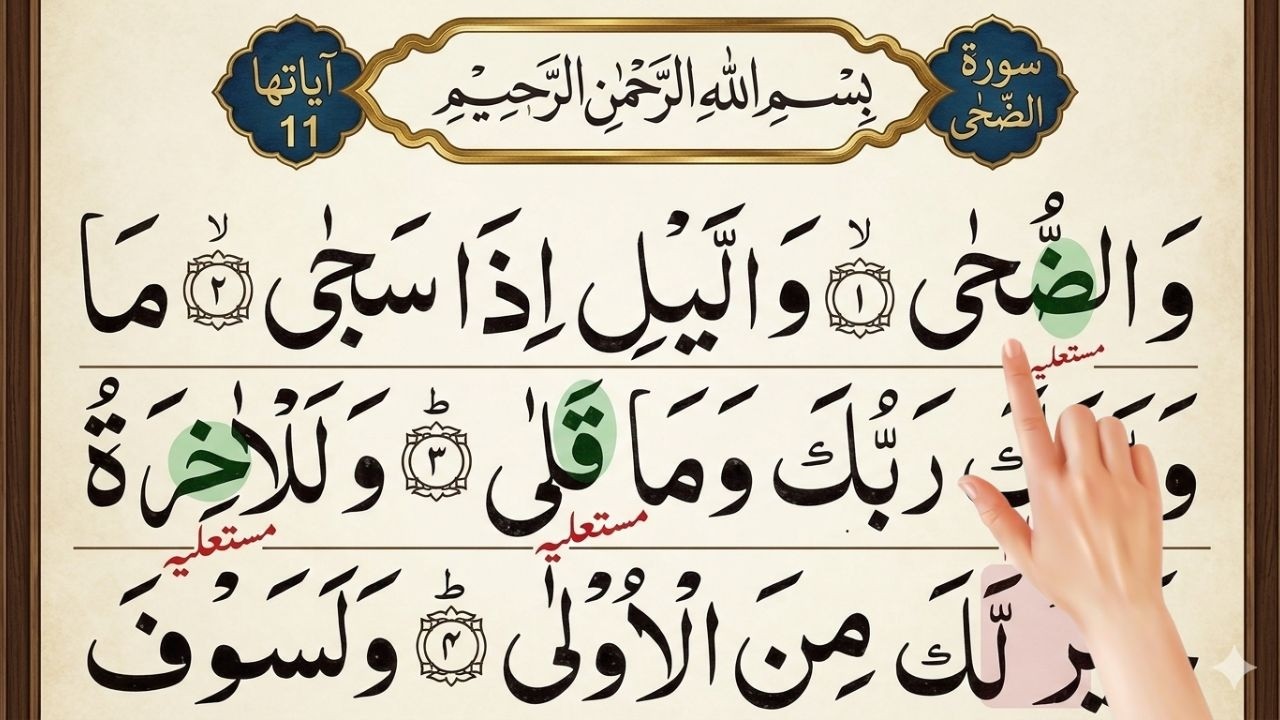 سورة الضّحٰى
بِسْمِ اللهِ الرَّحْمٰنِ الرَّحِيْمِ
آياتها 11
وَالضُّحٰى ۙ ۱ وَالَّيْلِ اِذَا سَجٰى ۙ ۲ مَا
مستعليه
رَبُّكَ وَمَا قَلٰى ؕ ۳ وَلَلْاٰخِرَةُ
مستعليه مستعليه
لَّكَ مِنَ الْاُوْلٰى ؕ ۴ وَلَسَوْفَ